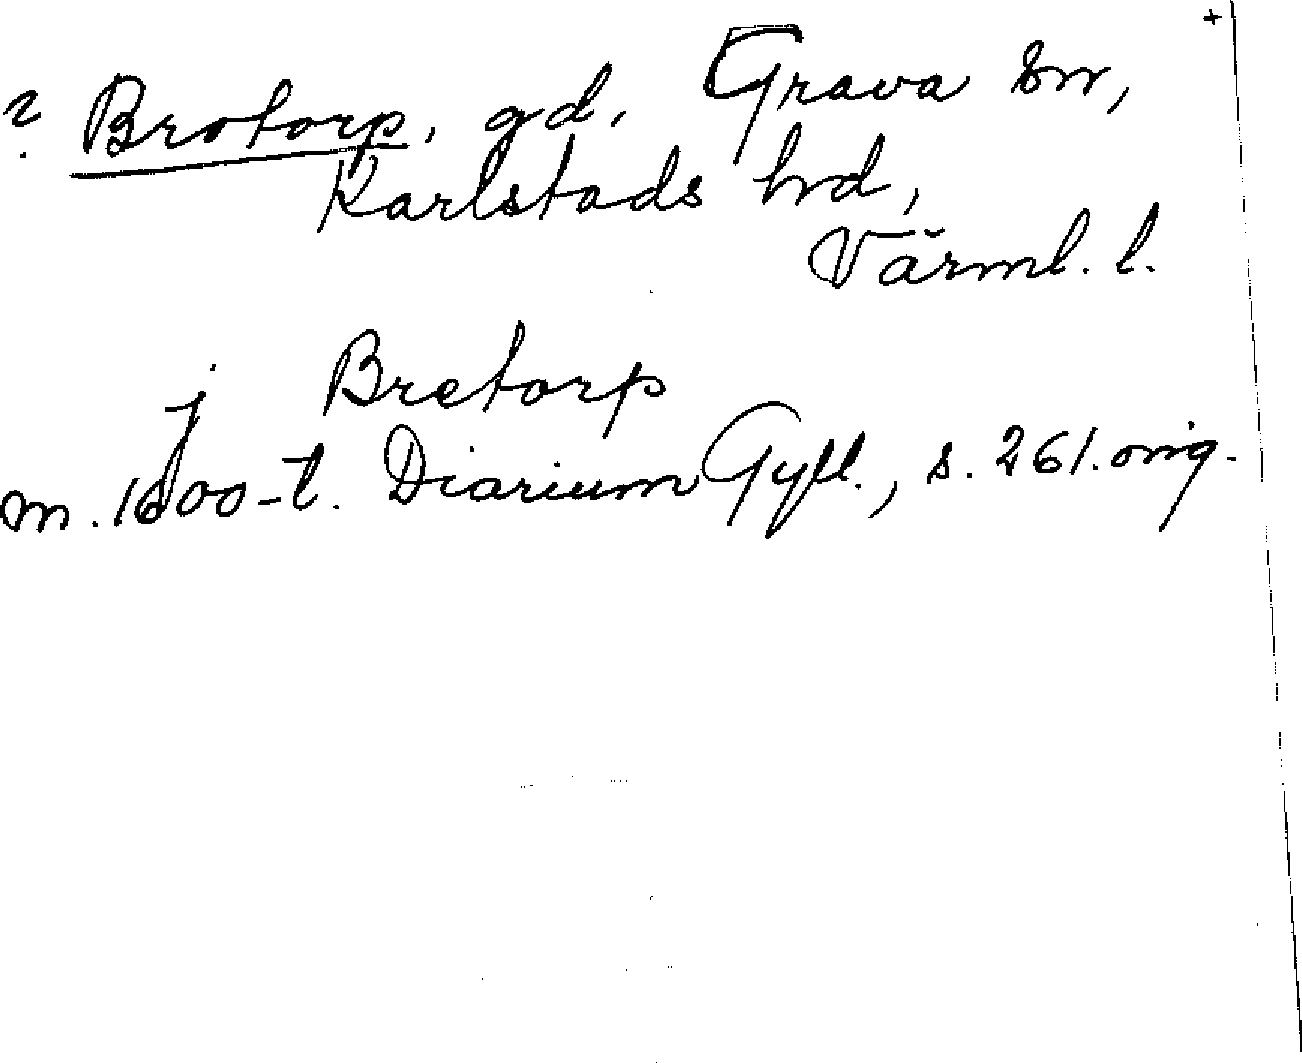 +
? Brotorp, gd, Grava sn,
Karlstads hrd,
Värml. l.
j Bretorp
m. 1600-t. Diarium Gyll., s. 261. orig.